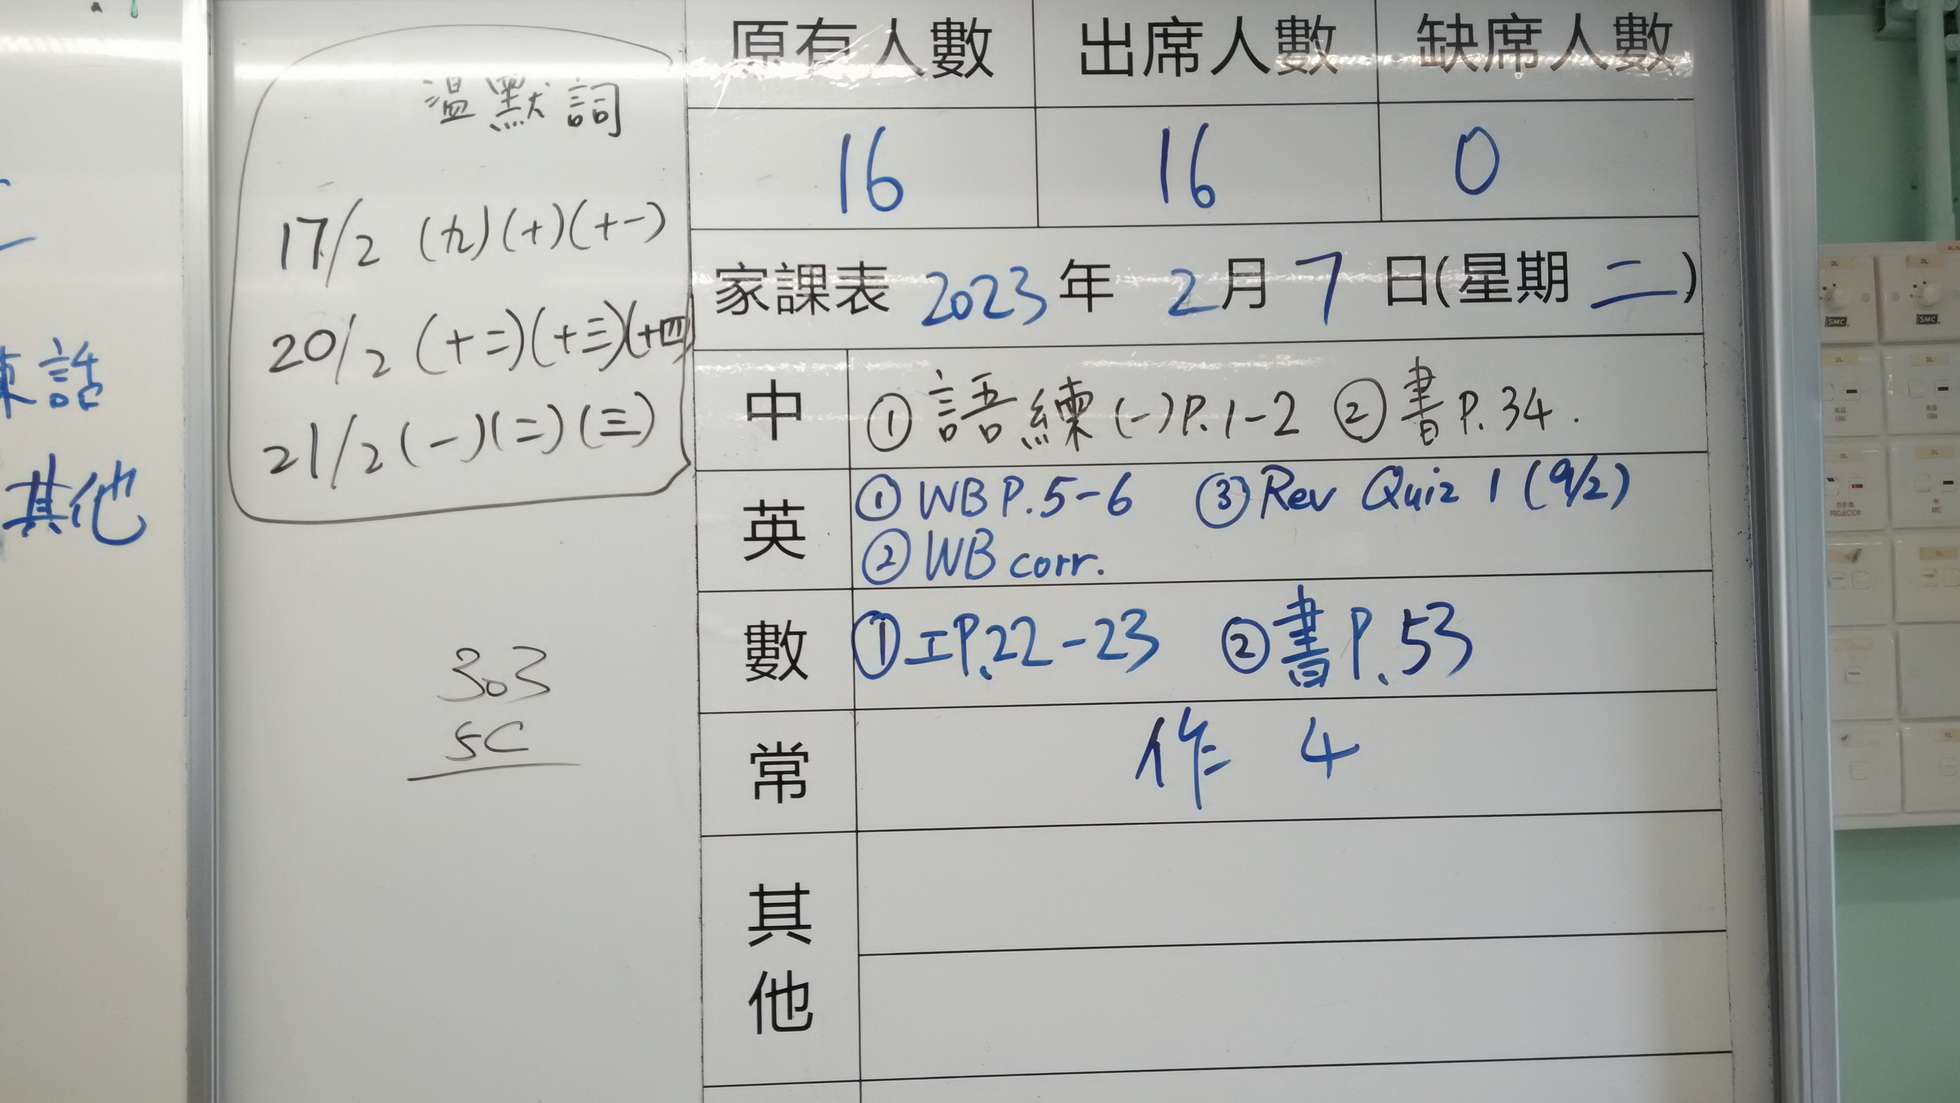 話
其他
溫默詞
17/2 (九)(十)(十一)
20/2 (十二)(十三)(十四)
21/2 (一)(二)(三)
303
5C
原有人數 出席人數 缺席人數
16 16 0
家課表 2023年 2月 7日(星期二)
中 ①語練(一)P.1-2 ②書P.34.
英 ①WB P.5-6 ③Rev Quiz 1 (9/2)
②WB corr.
數 ①工P.22-23 ②書P.53
常 作 4
其他